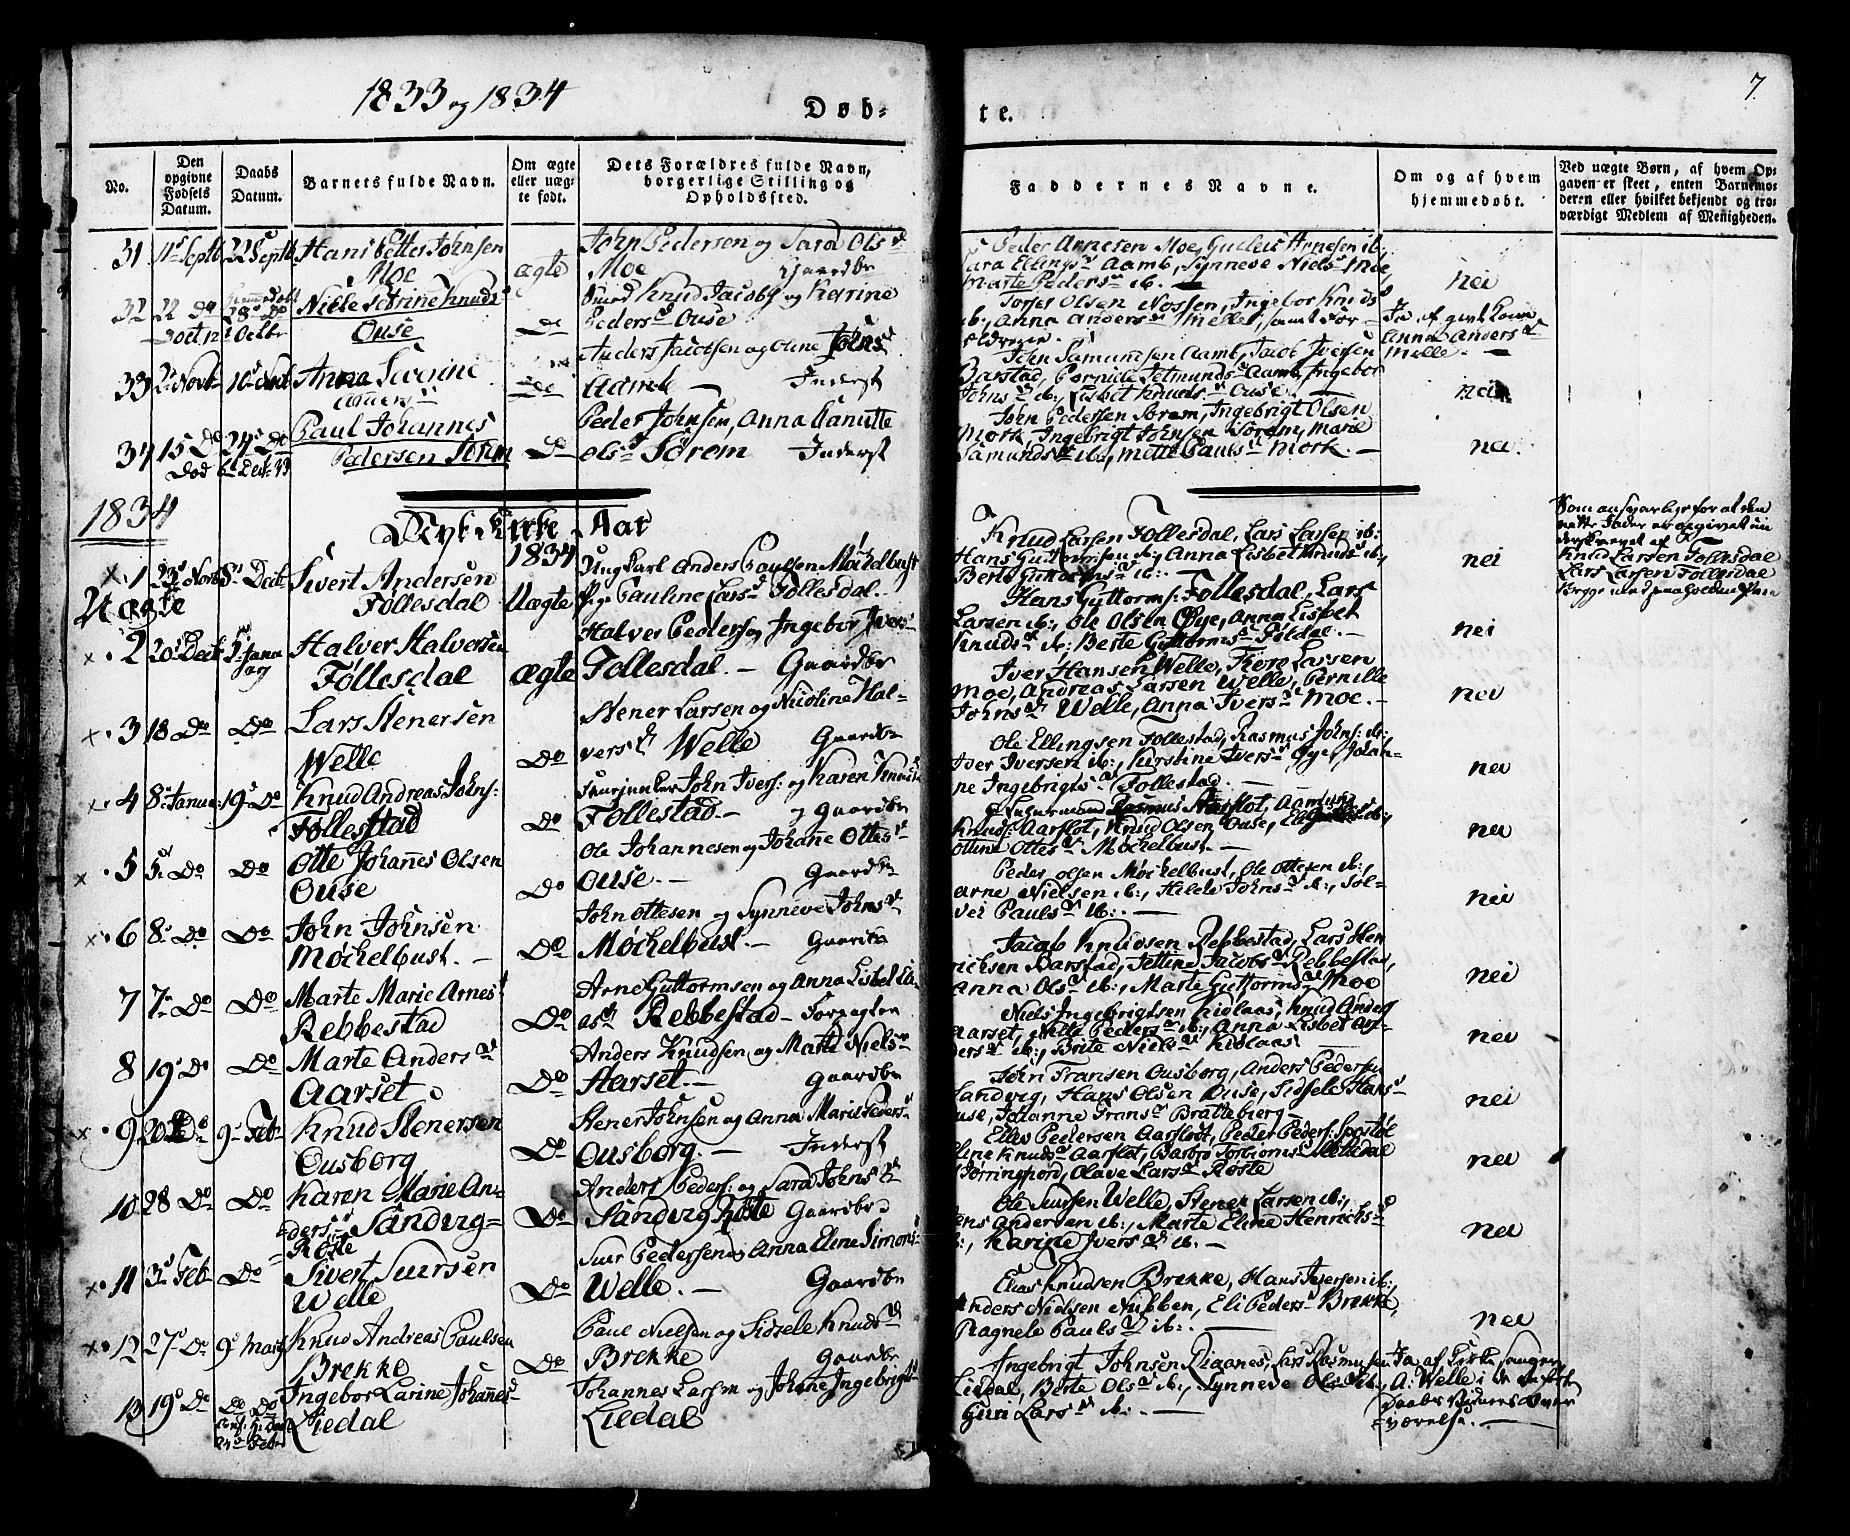 1833 og 1834
Døb-
te.
7.
No.
Den opgivne Fødsels Datum.
Daabs Datum.
Barnets fulde Navn.
Om ægte eller uægte født.
Dets Forældres fulde Navn, borgerlige Stilling og Opholdssted.
Faddernes Navne.
Om og af hvem hjemmedøbt.
Ved uægte Børn, af hvem Opgaven er skeet, enten Barnemoderen eller hvilket bekjendt og troværdigt Medlem af Menigheden.
31 11 Septb 22 Septb Hans Petter Johnsen
Moe
ægte
John Pedersen og Sara Ols
Moe Gaardbr
Peder Arnesen Moe, Gudleis Arnesen ib.
Aamb, Synneve Niels Moe
Marte Peders ib. —
nei
32 22 Do 28 Do
Octbr
Knuds
Ouse
Do
Knud Jacobs og Karine
Peders Ouse
Olsen Nossen, Ingebor Knuds
ib., Anna Anders Melle, samt For-
ældrene.
Ja af givt Kone
Anna Anders
Melle. —
33 2 Novb 10 Novb Anna Severine
Anders
Do
Anders Jacobsen og Oline Johns
Aamb — Inderst
John Samunsen Aamb, Jacob Iversen
Barstad, Pernille Aamb, Ingebor
Johns ib., Lisbet Knuds Ouse. —
nei
34 15 Do 24 Do
Død 6 Dec: 33
Paul Johannes
Pedersen Sørem
Do
Peder Johnsen, Anna Danitte
Ols Sørem Inderst
John Pedersen Sørem, Ingebrigt Olsen
Mork, Ingebrigt Johnsen Sørem, Marie
Samunds ib., Mette Pauls Mork. —
nei.
1834
Nyt Kirke Aar
1834
1 23 Novb 8 Decb Sivert Andersen
Føllesdal
Uægte
Uægte
Ungkarl Anders Paulsen Møckelbust
Pige Pauline Lars Føllesdal.
Knud Larsen Føllesdal, Lars Larsen ib:
Hans Guttormsen ib., Anna Lisbet Knuds ib.,
Berte Guttorms ib: —
nei
Som ansvarlige for at den
rette Fader er opgivet un
derskrevet af
Knud Larsen Føllesdal
Lars Larsen Føllesdal
Begge med paaholden Pen
2 20 Decb 5 Janu
ary
Halver Halversen
Føllesdal
ægte
Halver Peders og Ingebor Ivers
Føllesdal — Gaardbr
Hans Guttorms: Føllesdal, Lars
Larsen ib:, Ole Olsen Øye, Anna Lisbet
Knuds ib., Berte Guttorms —
nei
3 18 Do Do Lars Stenersen
Welle
Do
Stener Larsen og Nicoline Hal-
vers Welle Gaardbr
Iver Hansen Welle, Larsen
Moe, Andreas Larsen Welle, Pernille
Johns Welle, Anna Ivers Moe. —
nei
4 8 Janu: 19 Do Knud Andreas Johns:
Føllestad
Do
John Ivers: og Karen Knuds
Føllestad. — og Gaardbr
Ole Ellingsen Føllestad, Rasmus Johns: ib:
Iver Iversen ib:, Kirstine Ivers Øye, Johan-
ne Ingebrigts Føllestad. —
nei
5 5 Do Do Otte Johannes Olsen
Ouse
Do
Ole Johannesen og Johanne Ottes
Ouse. — Gaardbr
Rasmus Aarflot, Aamund
Knuds: Aarflot, Knud Olsen Ouse,
Ottine Ottes Møckelbust. —
nei
6 8 Do Do John Johnsen
Møckelbust. —
Do
John Ottesen og Synneve Johns
Møckelbust. — Gaardbr
Peder Olsen Møckelbust, Ole Ottesen ib:,
Arne Nielsen ib:, Hilde Johns ib:, Sol-
vei Pauls ib:. —
nei
7 7 Do Do Marte Marie Arnes
Rebbestad
Do
Arne Guttormsen og Anna Lisbet Eli-
as Rebbestad — Forpagter
Jacob Knudsen Rebbestad, Lars Hen
ricksen Barstad, Jettine Jacobs Rebbestad,
Anna Ols ib:, Marte Guttorms Moe
nei
8 19 Do Do Marte Anders
Aarset
Do
Anders Knudsen og Marte Niels
Aarset. — Gaardbr
Niels Ingebrigtsen Kielaas, Knud Anders
Aarset, Peders ib:, Anna Lisbet An-
ders ib:, Brite Niels Kielaas —
nei
9 20 Do 9 Feb Knud Stenersen
Ousborg
Do
Stener Johnsen og Anna Marie Peders
Ousborg. — Inderst
John Fransen Ousborg, Anders Pedersen
Sandvig, Hans Olsen Ouse, Sidsele Hans
Ouse, Johanne Frans Bratteberg —
nei
10 28 Do Do Karen Marie An-
ders Sandvig-
Røste
Do
Anders Peders: og Sara Johns
Sandvig Røste Gaardbr
Elles Pedersen Aarflot, Peder Peders:
Eline Knuds Aarflot,
Olave Lars Røste
nei
11 3 Feb Do Sivert Siursen
Welle
Do
Siur Pedersen og Anna Eline Simons
Welle. — Gaardbr
Ole Siursen Welle, Stener Larsen ib:,
Jens Andersen ib:, Marte Eline Henricks
ib:, Karine Ivers ib. —
nei
12 27 Do 9 Marts Knud Andreas Paulsen
Brekke
Do
Paul Nielsen og Sidsele Knuds
Brekke Gaardbr
Elias Knudsen Brekke, Hans Iversen ib:,
Anders Nielsen Nubben, Eli Peders Brekke,
Ragnele Pauls ib:. —
nei
13 19 Do Do Do
Ingebor Larine Johannes
Liedal
Johannes Larsen og Johanne Ingebrigts
Liedal
Ingebrigt Johnsen Diganes, Lars Rasmusen
Liedal, Berte Ols ib:, Synneve Ols ib.,
Guri Lars ib:. —
Ja af Kirkesanger
A: Welle i
Daabs Vidners Over
værelse. —